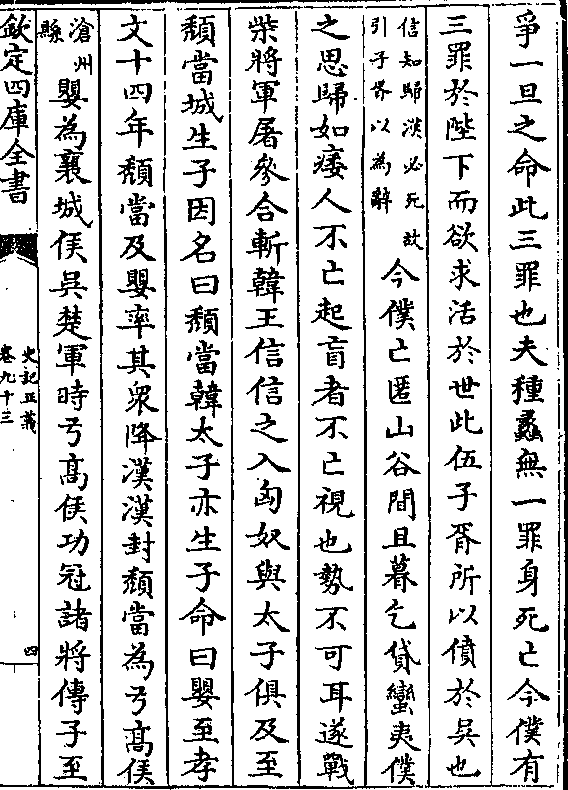 爭一旦之命此三罪也夫種蠡無一罪身死亡今僕有
三罪於陛下而欲求活於世此伍子胥所以僨於吳也
信知歸漢必死故
引子胥以為辭
今僕亡匿山谷間旦暮乞貸蠻夷僕
之思歸如痿人不亡起盲者不亡視也勢不可耳遂戰
柴將軍屠參合斬韓王信信之入匈奴與太子俱及至
頹當城生子因名曰頹當韓太子亦生子命曰嬰至孝
文十四年頹當及嬰率其衆降漢漢封頹當為弓髙侯
滄州
縣
嬰為襄城侯吳楚軍時弓髙侯功冠諸將傳子至
欽定四庫全書
史記正義
卷九十三
四